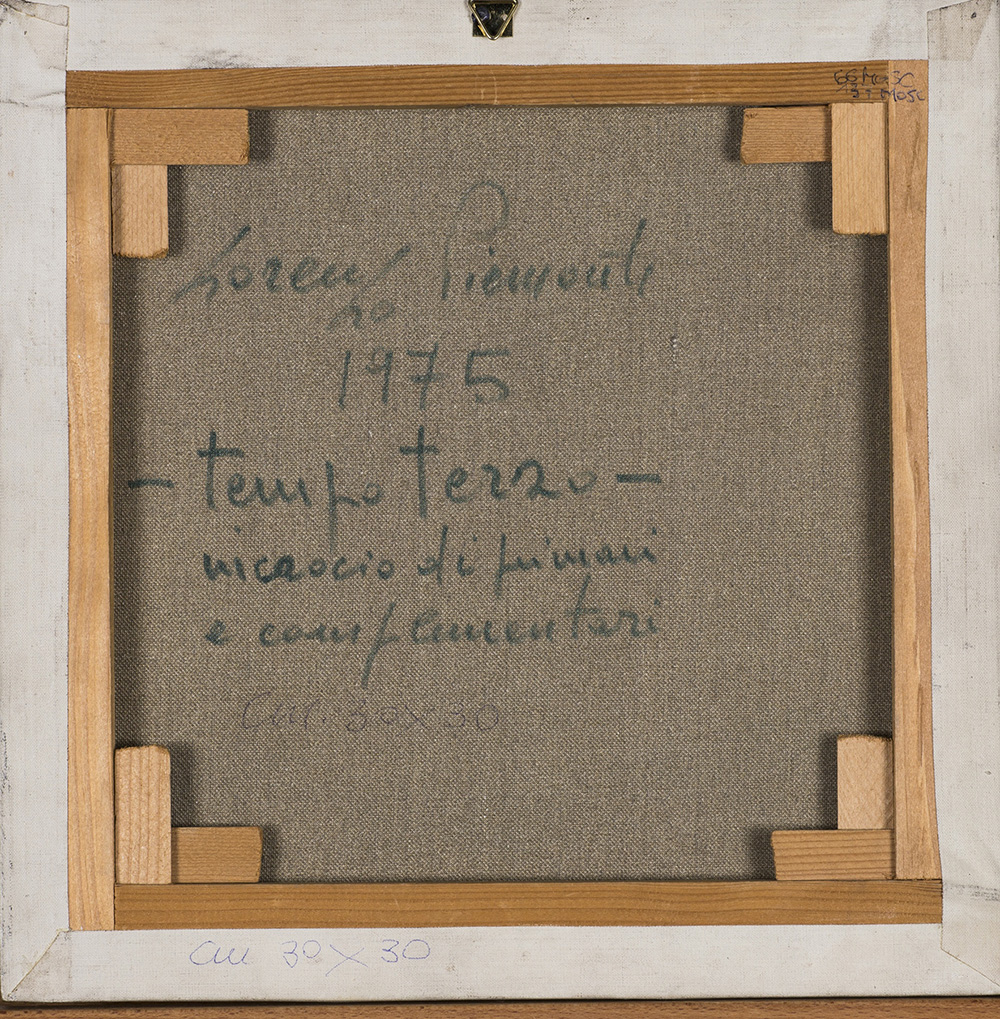 Loren Piemonti
zo
1975
- tempo terzo -
incrocio di primari
e complementari
cm. 30x30
cm 30x30